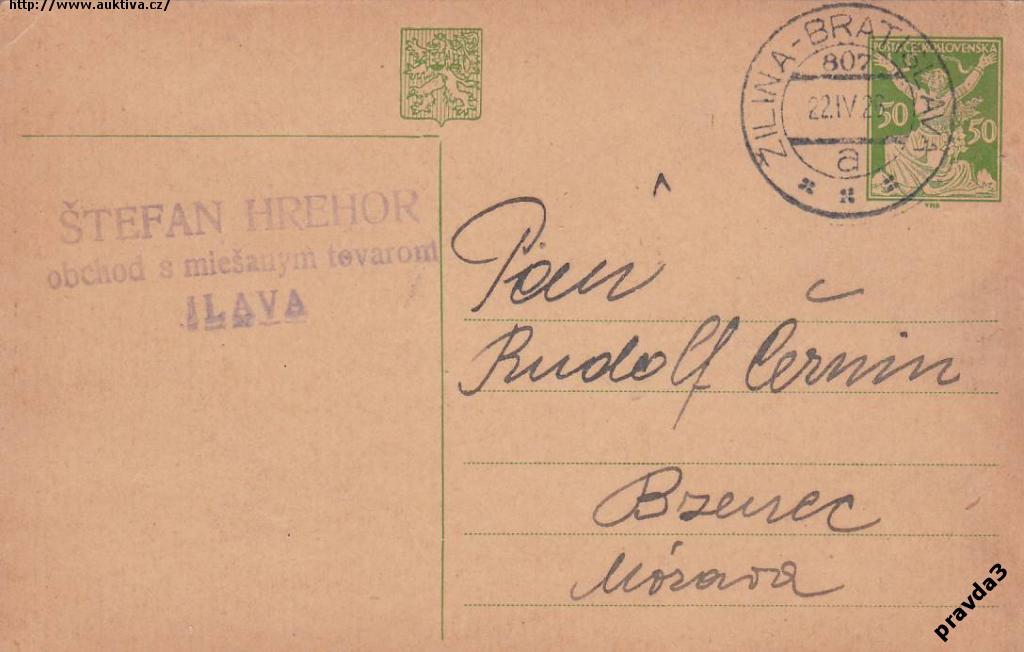 http://www.auktiva.cz/
POŠTA ČESKOSLOVENSKÁ
50 50
ŽILINA-BRATISLAVA
807
22.IV.2
a
ŠTEFAN HREHOR
obchod s miešaným tovarom
ILAVA
Pán
Rudolf Černín
Bzenec
Mórava
pravda3